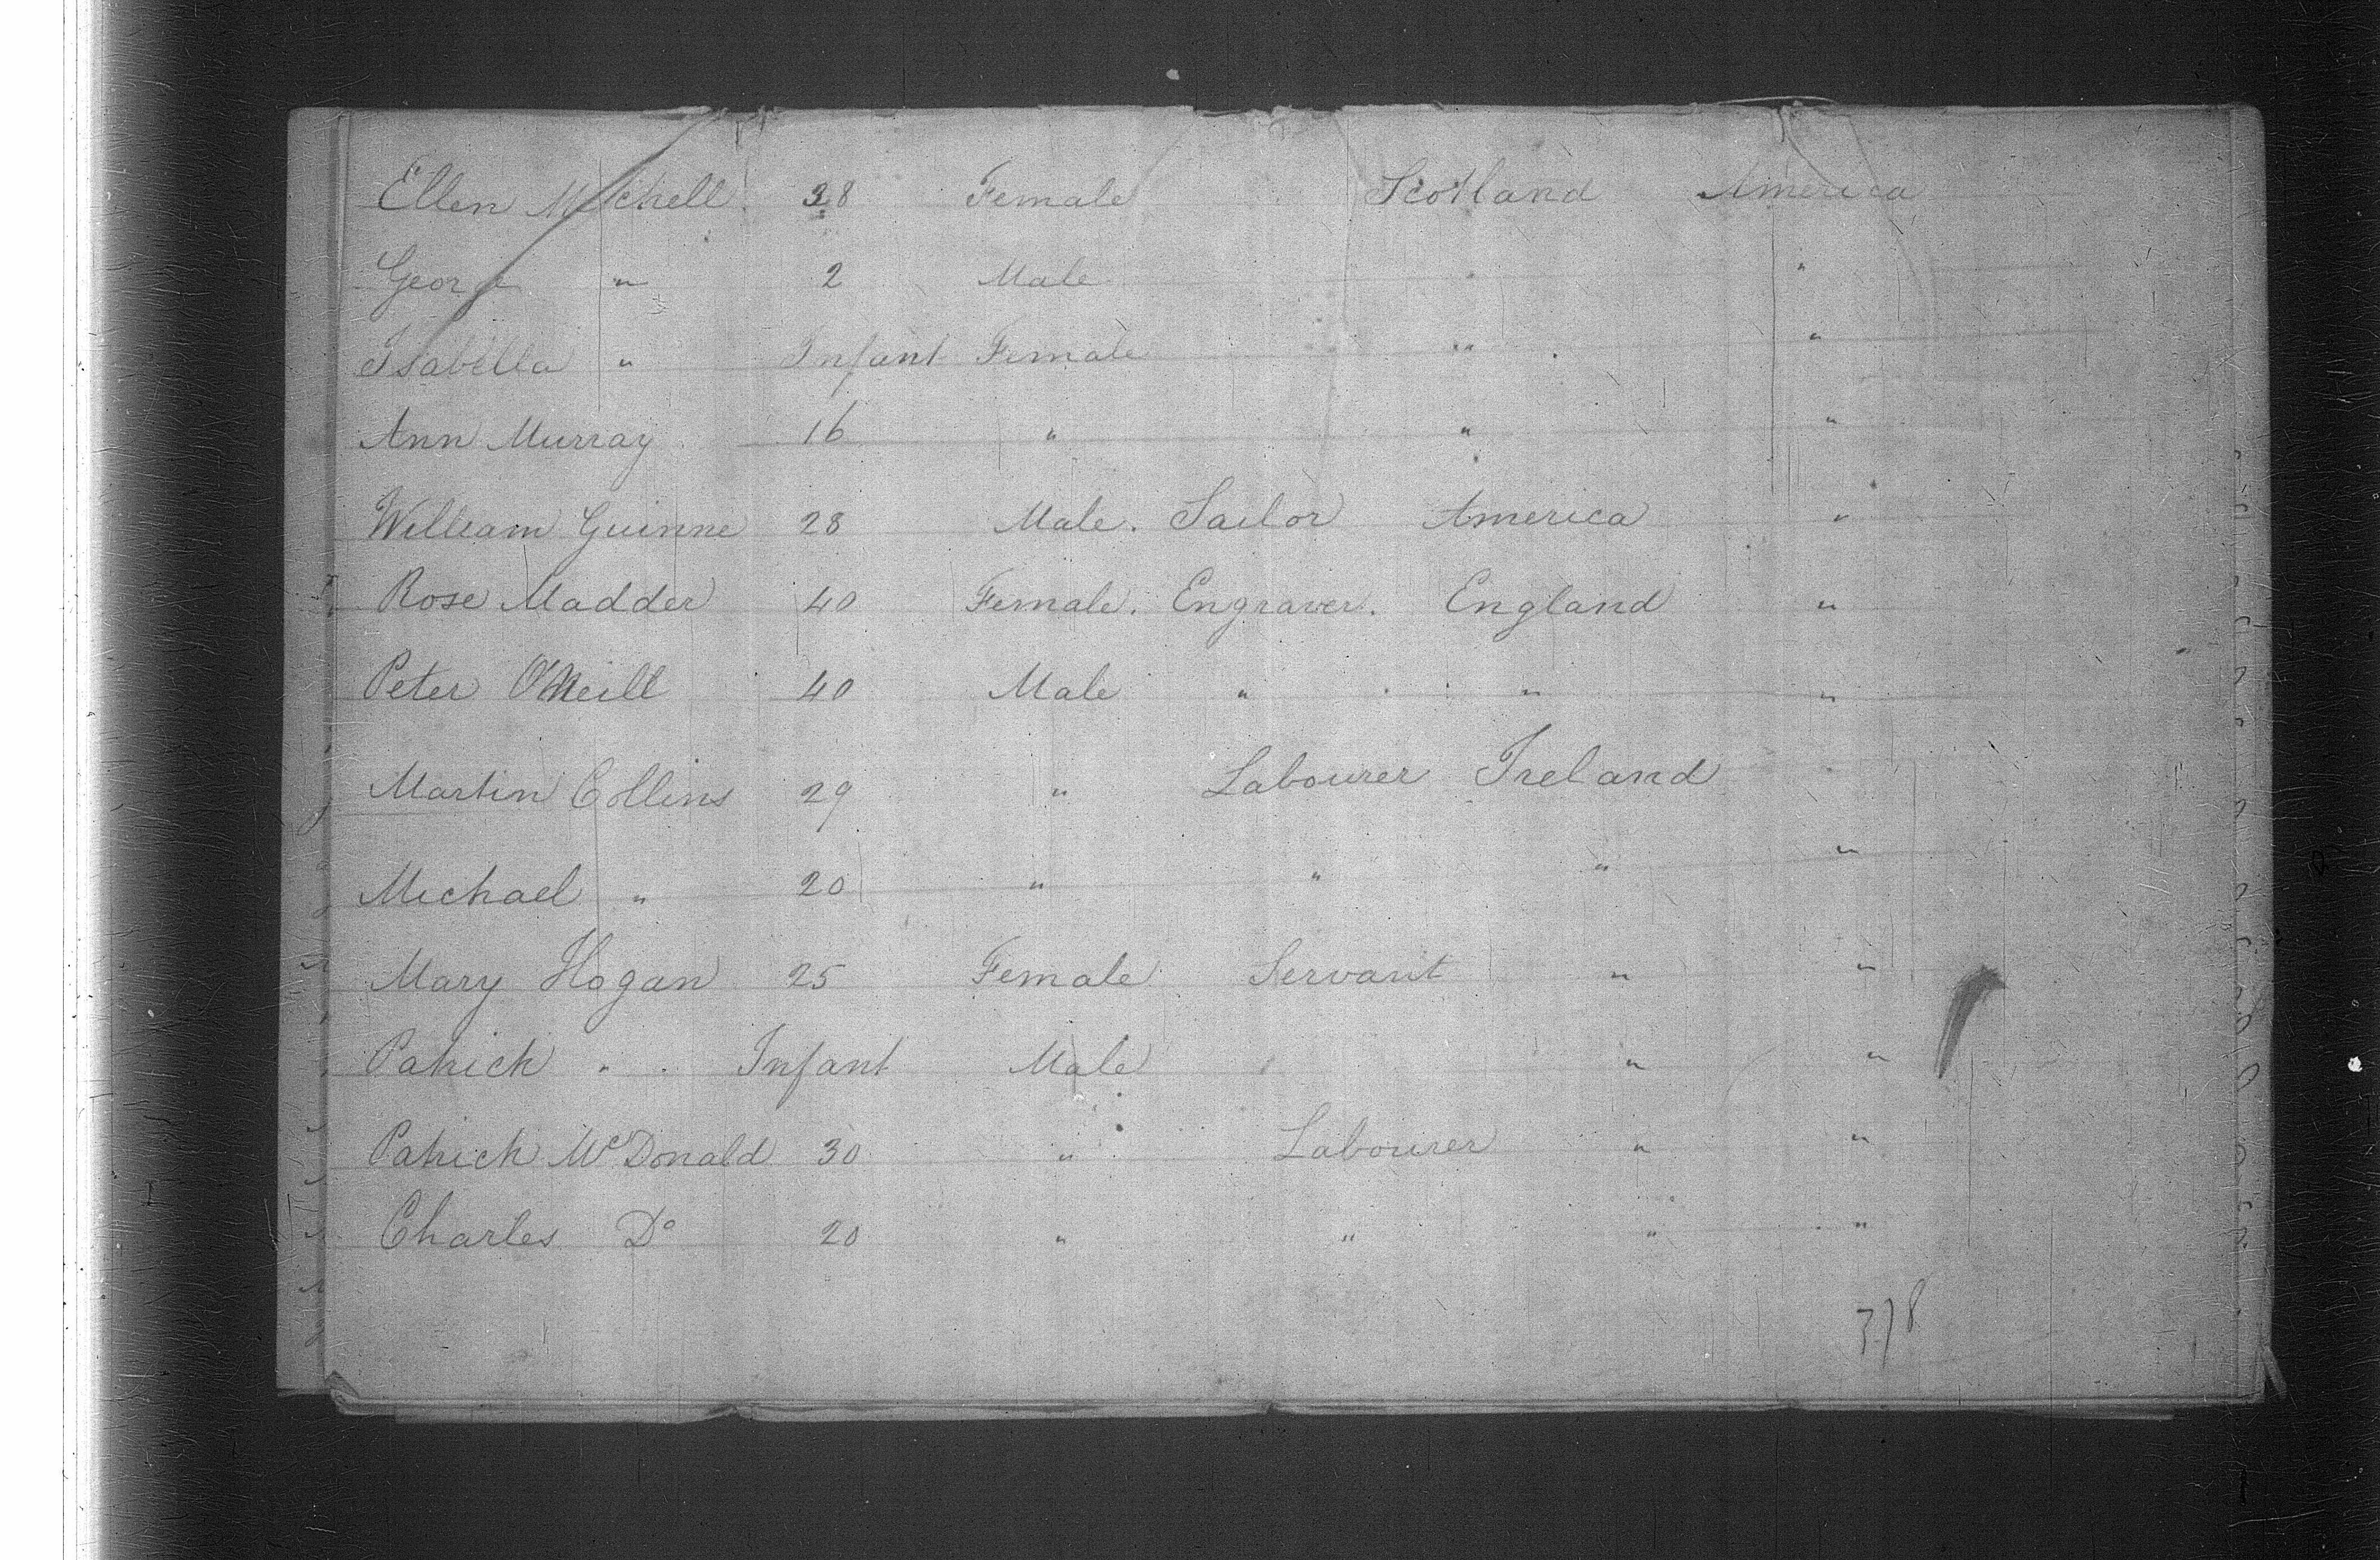 Ellen Mitchell 38 Female Scotland America
George " 2 Male " "
Isabella " Infant Female " "
Ann Murray 16 " " "
William Guinne 28 Male. Sailor America "
Rose Madder 40 Female. Engraver. England "
Peter O'Neill 40 Male " " "
Martin Collins 29 " Labourer Ireland
Michael " 20 " " " "
Mary Hogan 25 Female Servant " "
Patrick " Infant Male " "
Patrick McDonald 30 " Labourer " "
Charles Do 20 " " " "
378